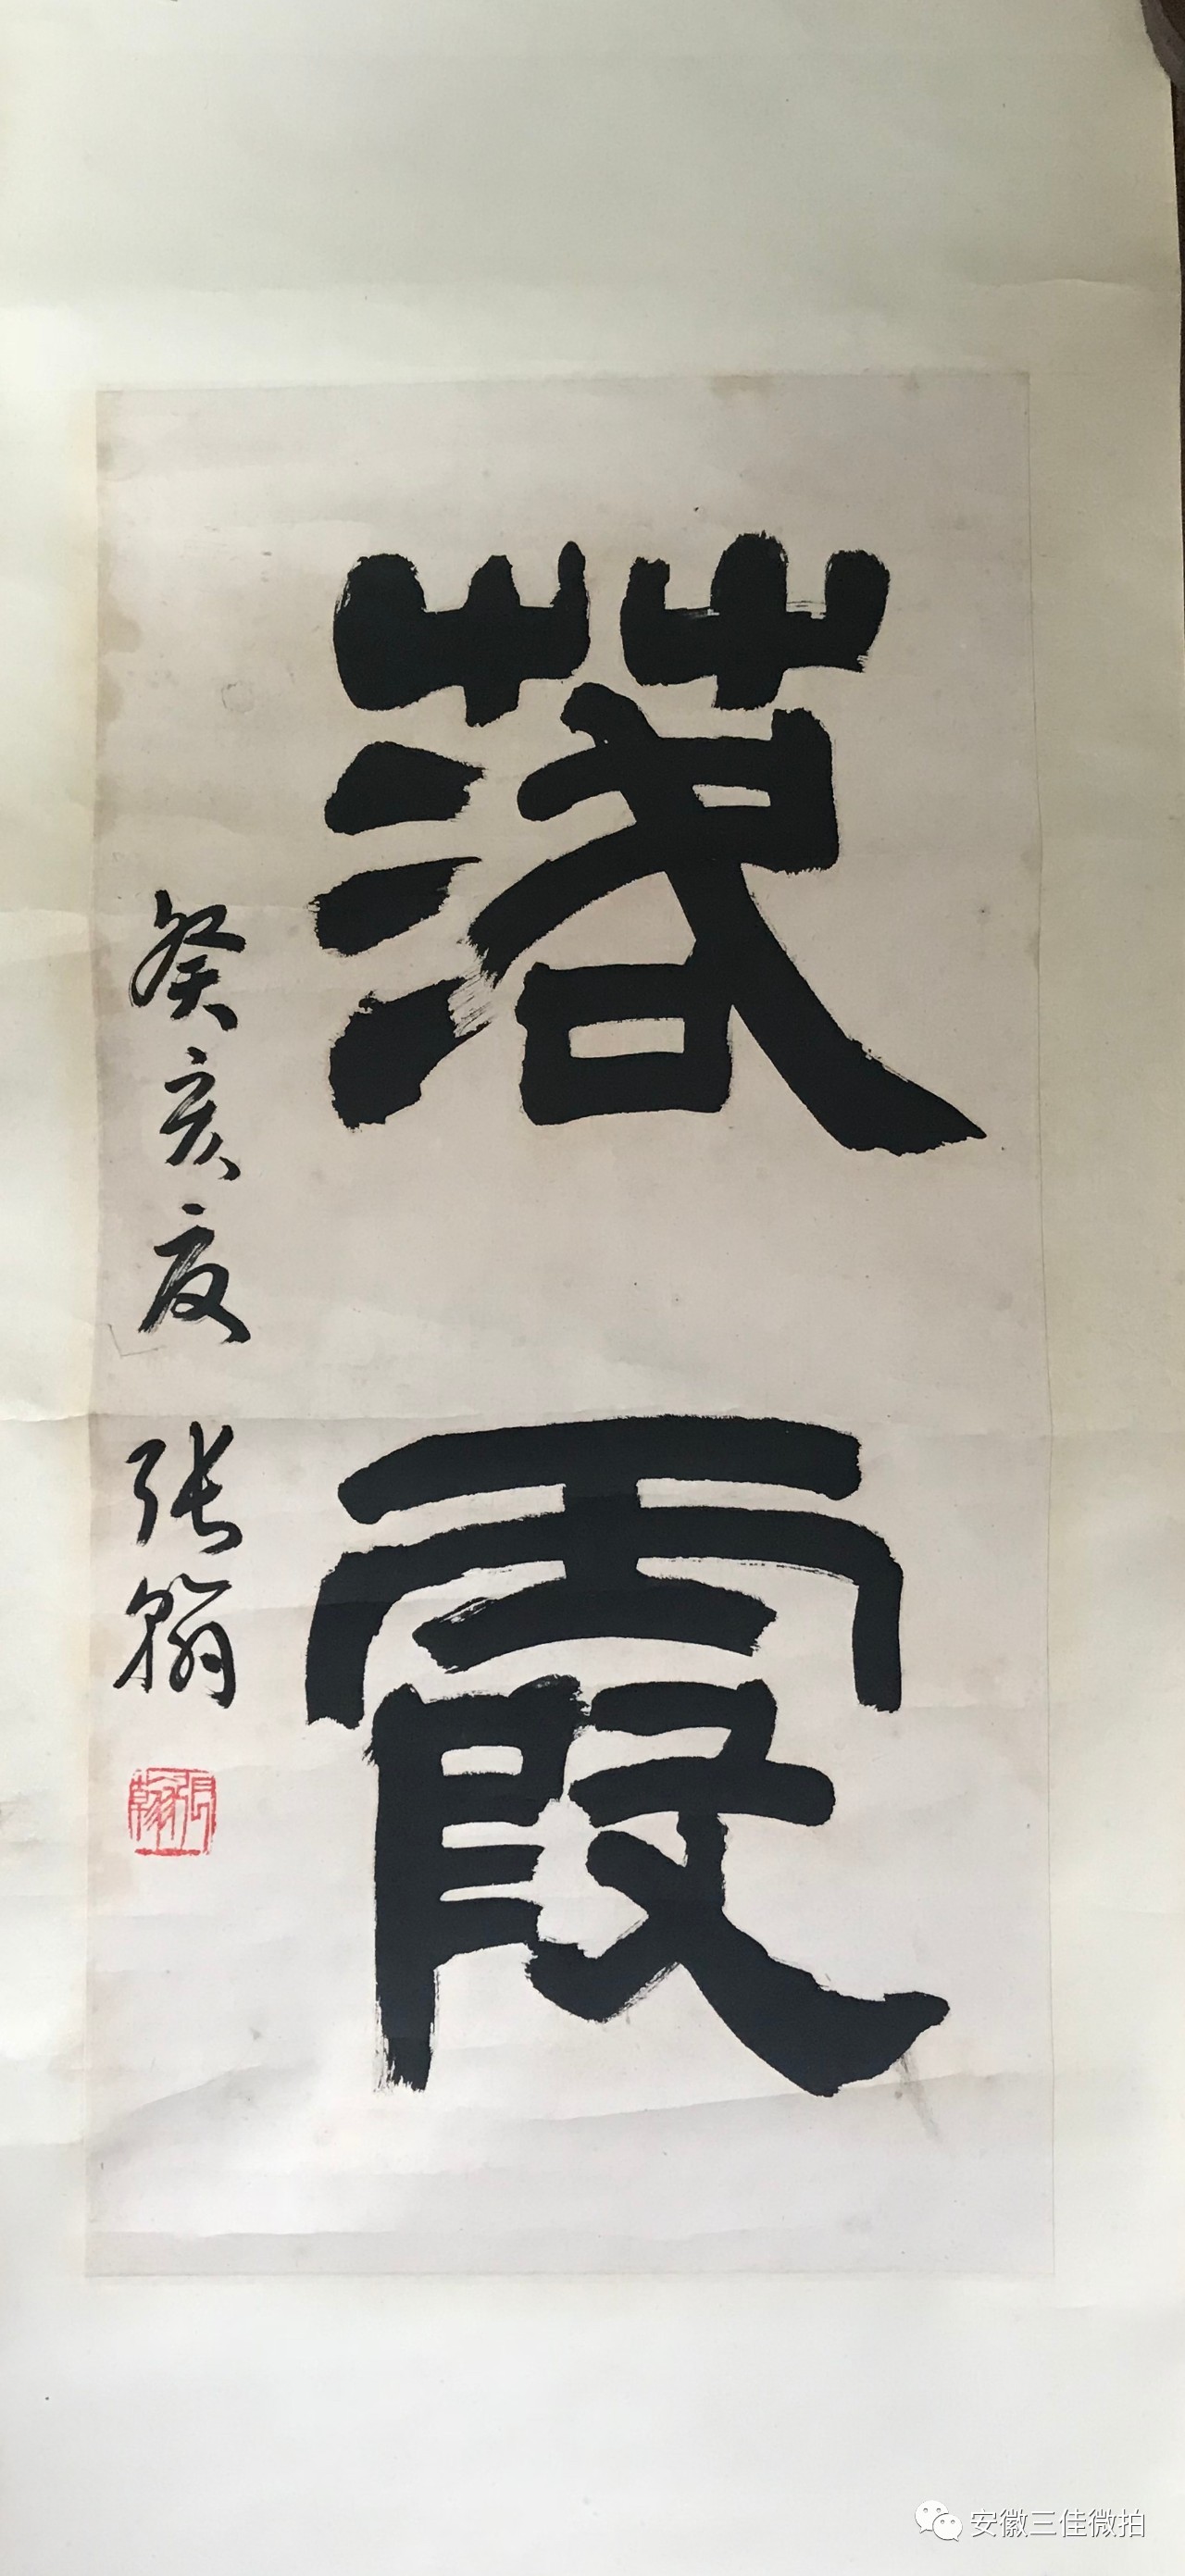 落霞
癸亥夏 张翰
张翰
安徽三佳微拍